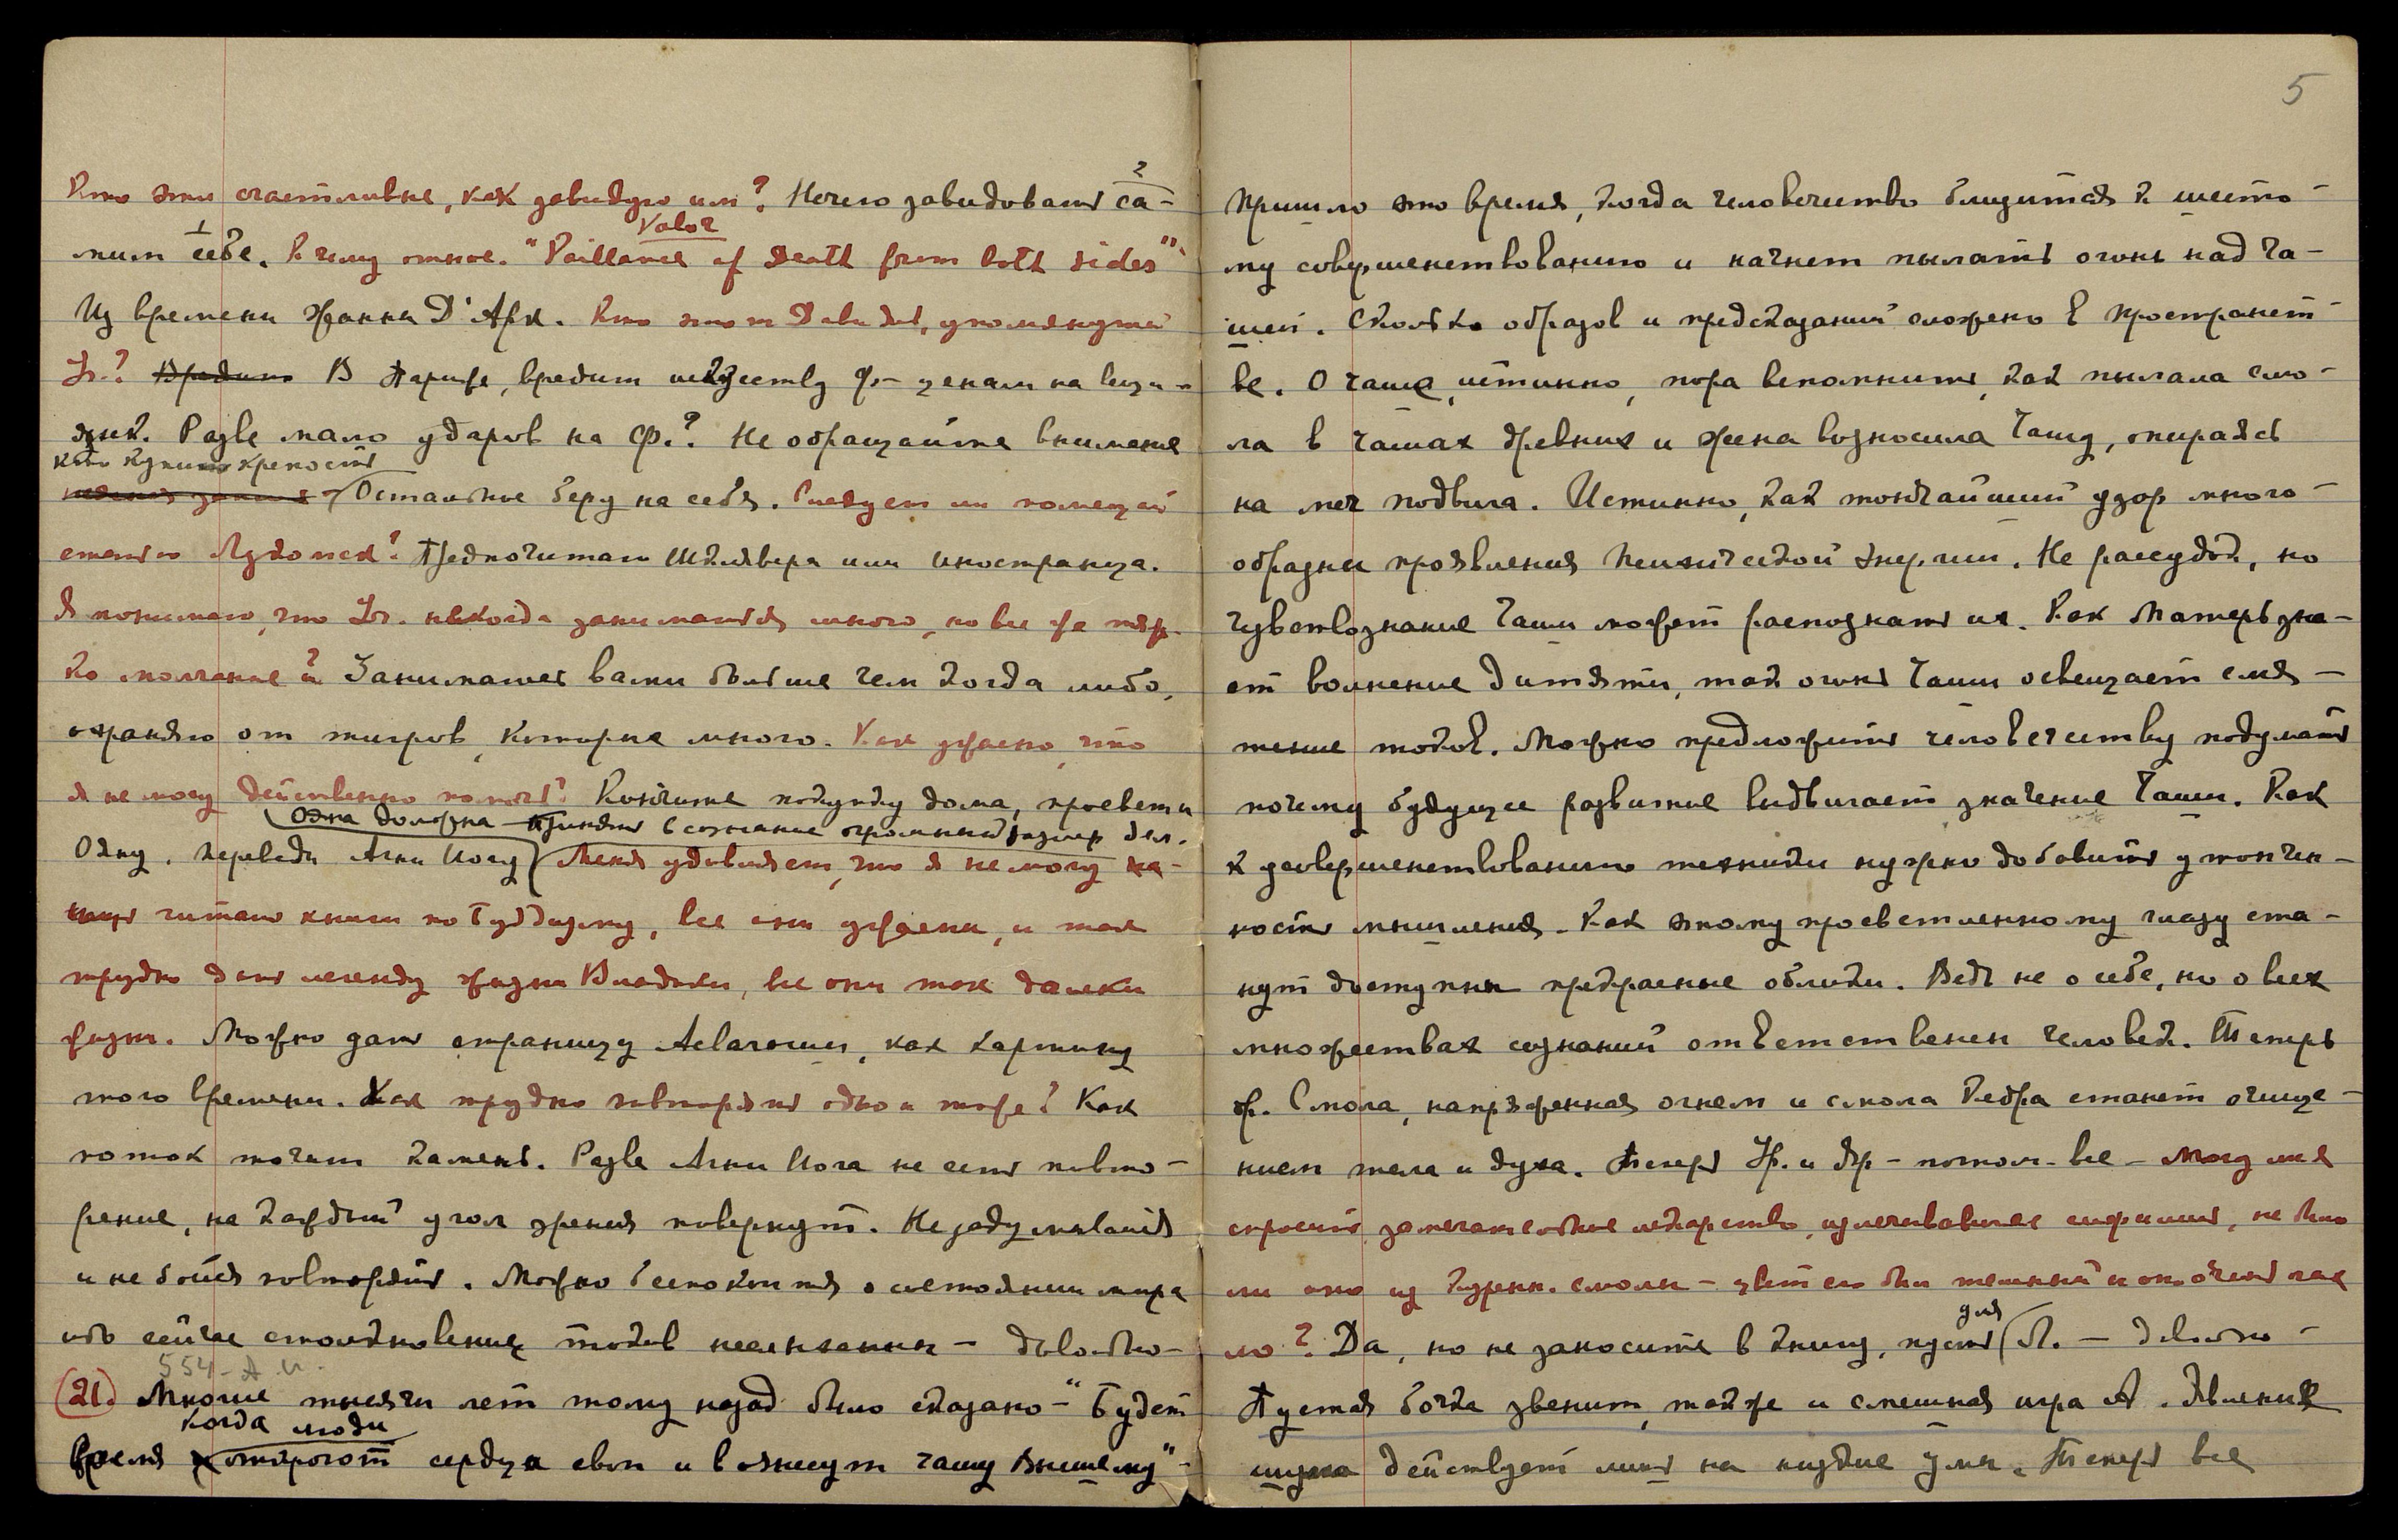 Кто эти счастливые, как завидую им? Нечего завидовать са-
2
мим себе. К чему отнес. "Vaillance of Death from both sides"
1
Valor
Из времени Жанны Д'Арк. Кто этот Давидов, упомянутый
Ур.? Вредит В Париже, вредит искусству ценам на
язык. Разве мало ударов на Ф.? Не обращайте внимание
кто купит крепость
Остальные беру на себя. Следует ли
Предпочитаю Шклявера или иностранца.
Я понимаю, что Ур. некогда заниматься много, но все же тяж-
ко молчание? Занимаюсь вами больше чем когда либо,
охраняю от тигров, которые много. Как ужасно, что
я не могу действенно помочь? Кончите покупку дома, просвети
Одна должна принять в сознание огромный размер дел.
Одну, переведи Агни Йогу Меня удивляет, что я не могу на-
читаю книги по Буддизму, все они ужасны, и так
трудно дать легенду жизни Владыки, все они так далеки
жизни. Можно дать страницу Асвагоши, как картину
того времени. Как трудно повторять одно и тоже? Как
поток точит камень. Разве Агни Йога не есть повто-
рение, на каждый угол зрения повернут. Не задумывайся
и не бойся повторять. Можно беспокоиться о состоянии мира
ибо сейчас столкновение токов неслыханны - довольно-
554 - А.И.
(21.) Многие тысячи лет тому назад было сказано - "Будет
когда люди
время откроют сердца свои и вознесут чашу Высшему"-
5
Пришло это время, когда человечество близится к шесто-
му совершенствованию и начнет пылать огонь над Ча-
шей. Сколько образов и предсказаний сложено в Пространст-
ве. О чаше, истинно, пора вспомнить, как пылала смо-
ла в чашах древних и жена возносила Чашу, опираясь
на меч подвига. Истинно, как тончайший узор много-
образны проявления психической энергии. Не рассудок, но
чувствознание Чаши может распознать их. Как Матерь зна-
ет волнение дитяти, так огонь Чаши освещает смя-
тение токов. Можно предложить человечеству подумать
почему будущее развитие выдвигает значение Чаши. Как
к усовершенствованию техники нужно добавить утончен-
ность мышления. Как этому просветленному глазу ста-
нут доступны прекрасные облики. Ведь не о себе, но о всех
множествах сознаний ответственен человек. Теперь
ф. Смола, напряженная огнем и смола Кедра станет очище-
нием тела и духа. Теперь Ур. и Яр - потом - все - Могу ли я
спросить замечательное лекарство, излечивавшее сифилис, не было
ли оно из смолы - цвет его был темный и оно очень
ло? Да, но не заносите в книгу, пусть для Л. - довольно -
Пустая бочка звенит, также и смешная игра А. Явление
шума действует лишь на низкие умы. Теперь все